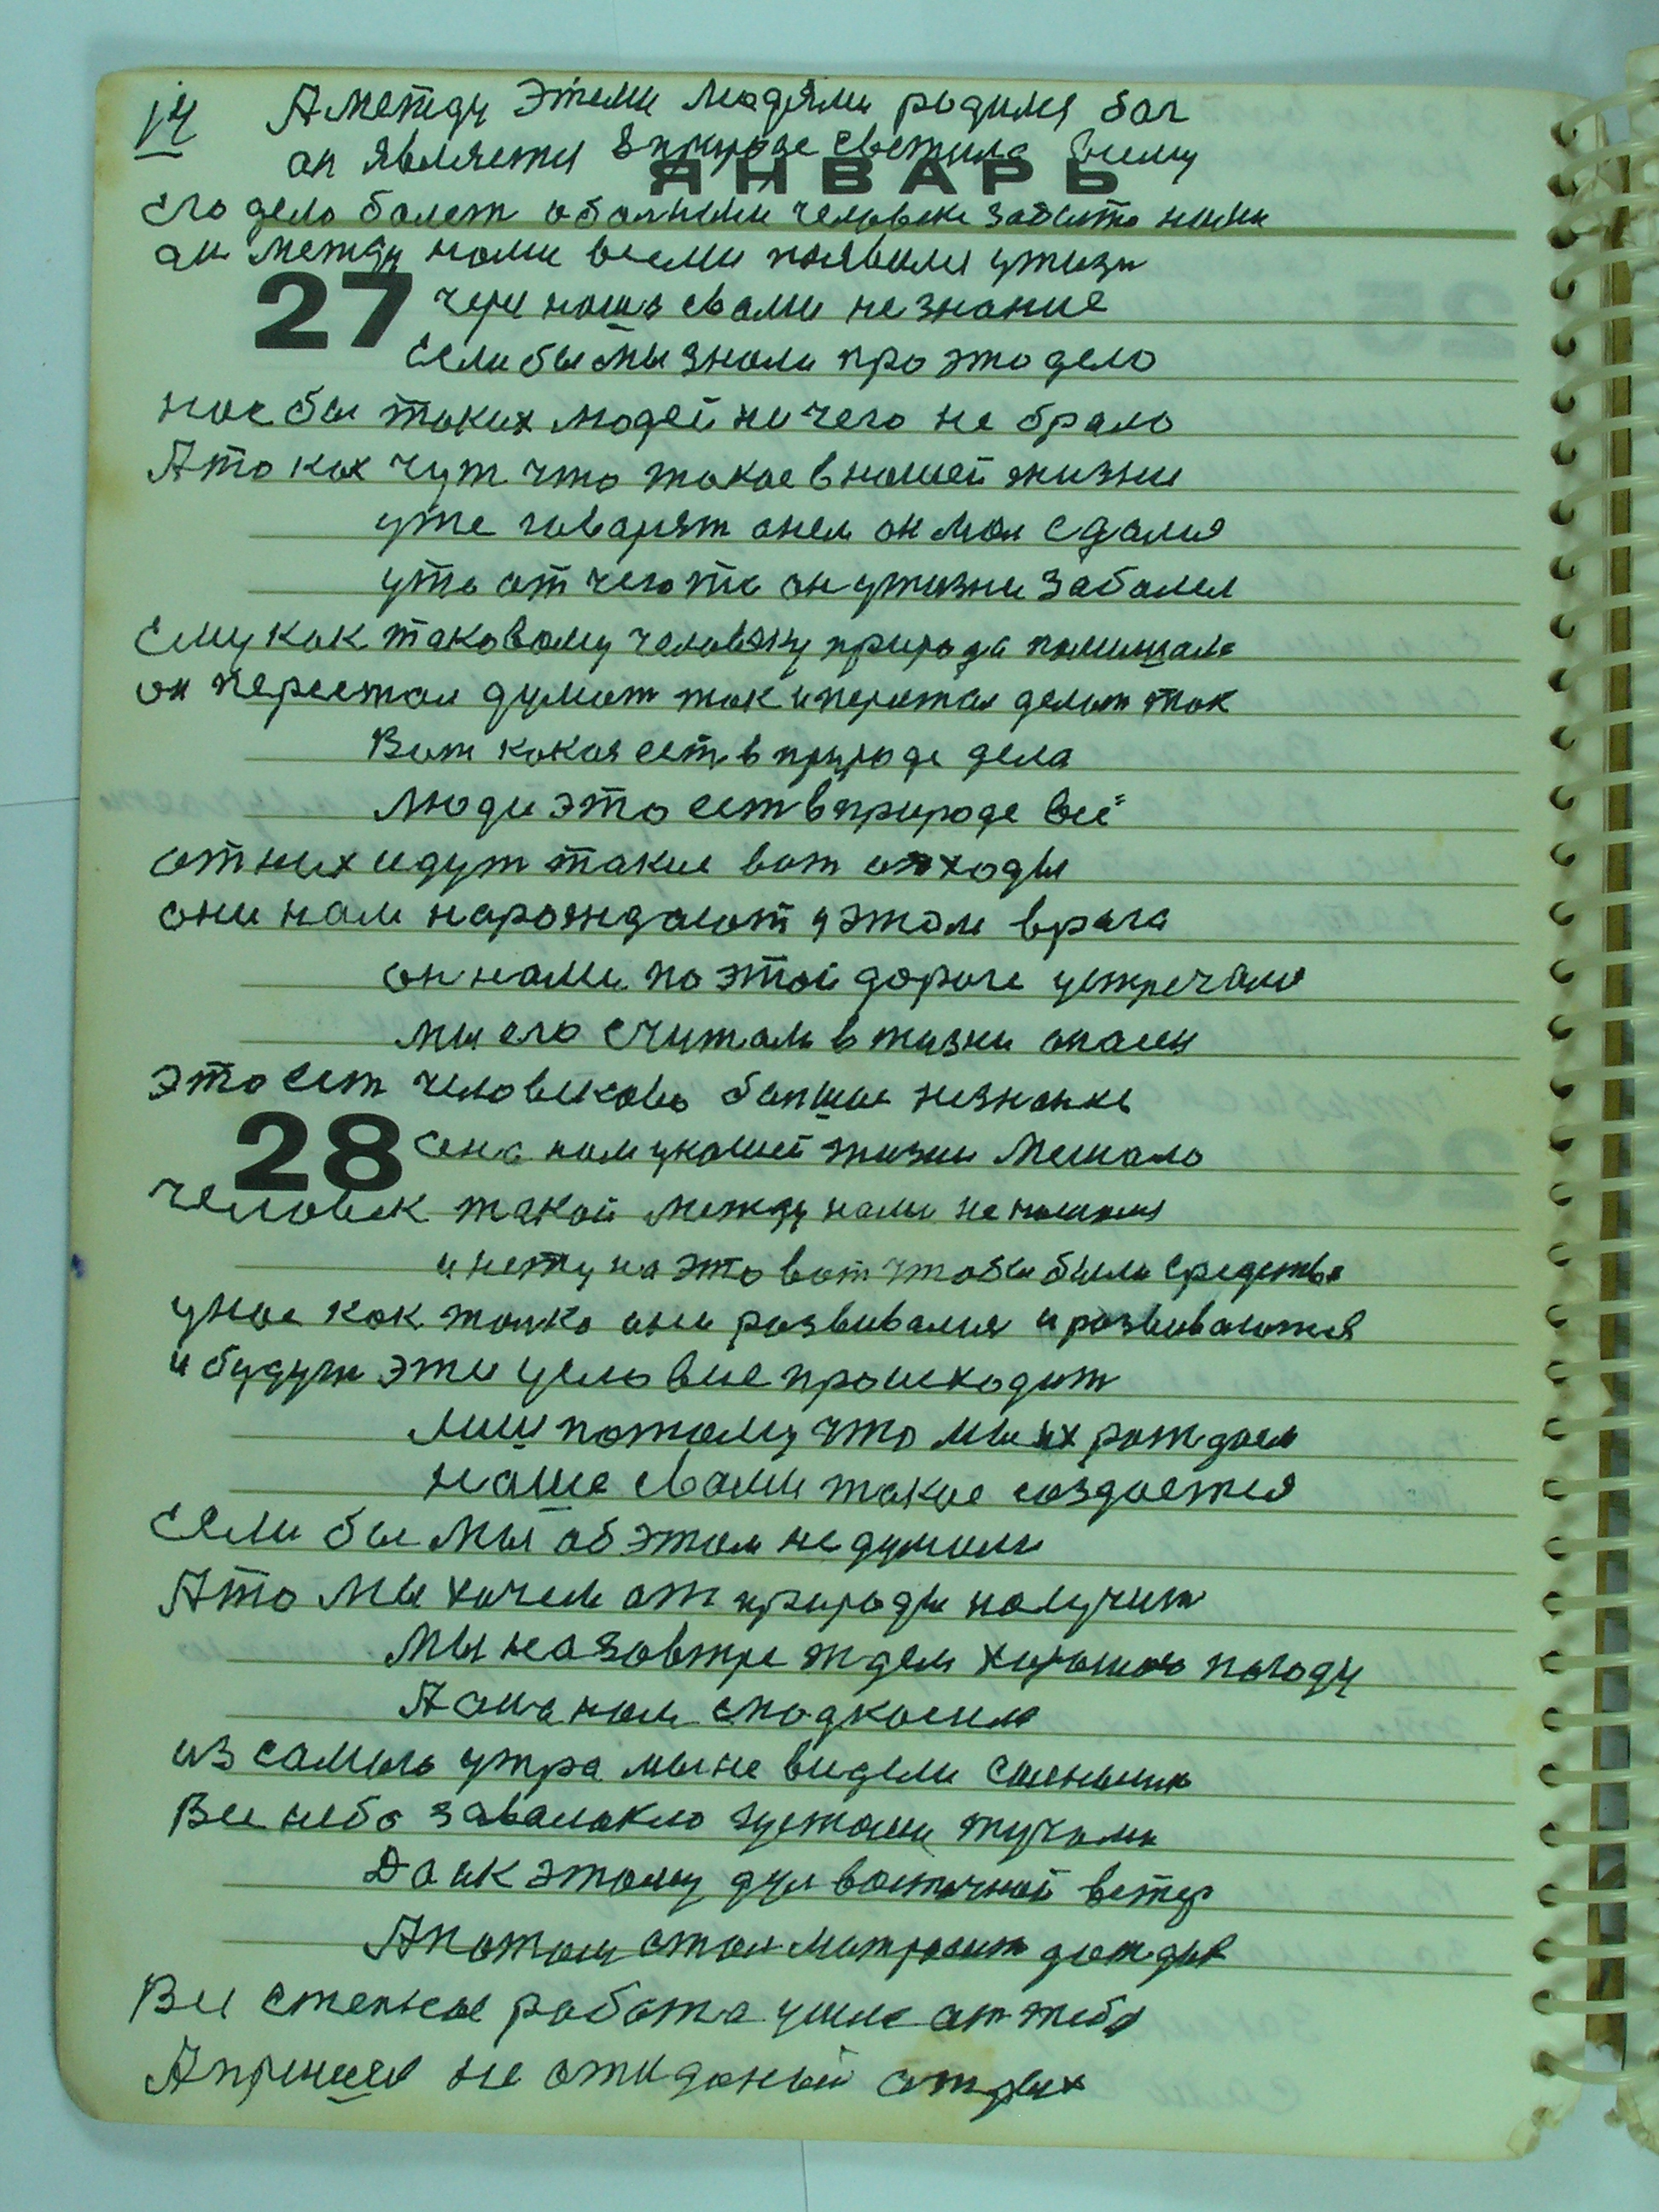 14 А между Этеми людями родился бог
он является в природе светила всему
ЯНВАРЬ
его дело болет обольным человеке забыто
он между нами всеми появился ужизн
27 через нашо свами не знание
если бы мы знали про это дело
нас бы таких людей ничего не брало
А то как чут что такое в нашей жизни
уже говарят онем он мол сдался
уто от чего то он ужизни заболел
Ему как таковому человеку природа помишала
он перестал думат так и перестал делат так
Вот какоя ест в природе дела
люди это ест в природе всё
от них идут такие вот отходы
они нам нарождают у этом врага
он нами по этой дороге устречался
мы его считали в жизни
это ест человеково болшое незнание
28 оно нам унашей жизни мешало
человек такой между нами не нашолся
и нету на это вот чтобы были средства
унас как толко они развивалися и развиваются
и будут эти условие происходит
лиш потому что мы их рождаем
наше свами такое создается
Если бы мы об этом не думали
А то мы хочем от природы получит
мы на завтре ждем хорошою погоду
А она нам
из самого утра мы не видели
Все небо заволокло густоми тучами
Да ик этому дул восточной ветер
А потом стал матросит дождык
Все степное работа ушла от тебя
А пришел не ожиданый отдых